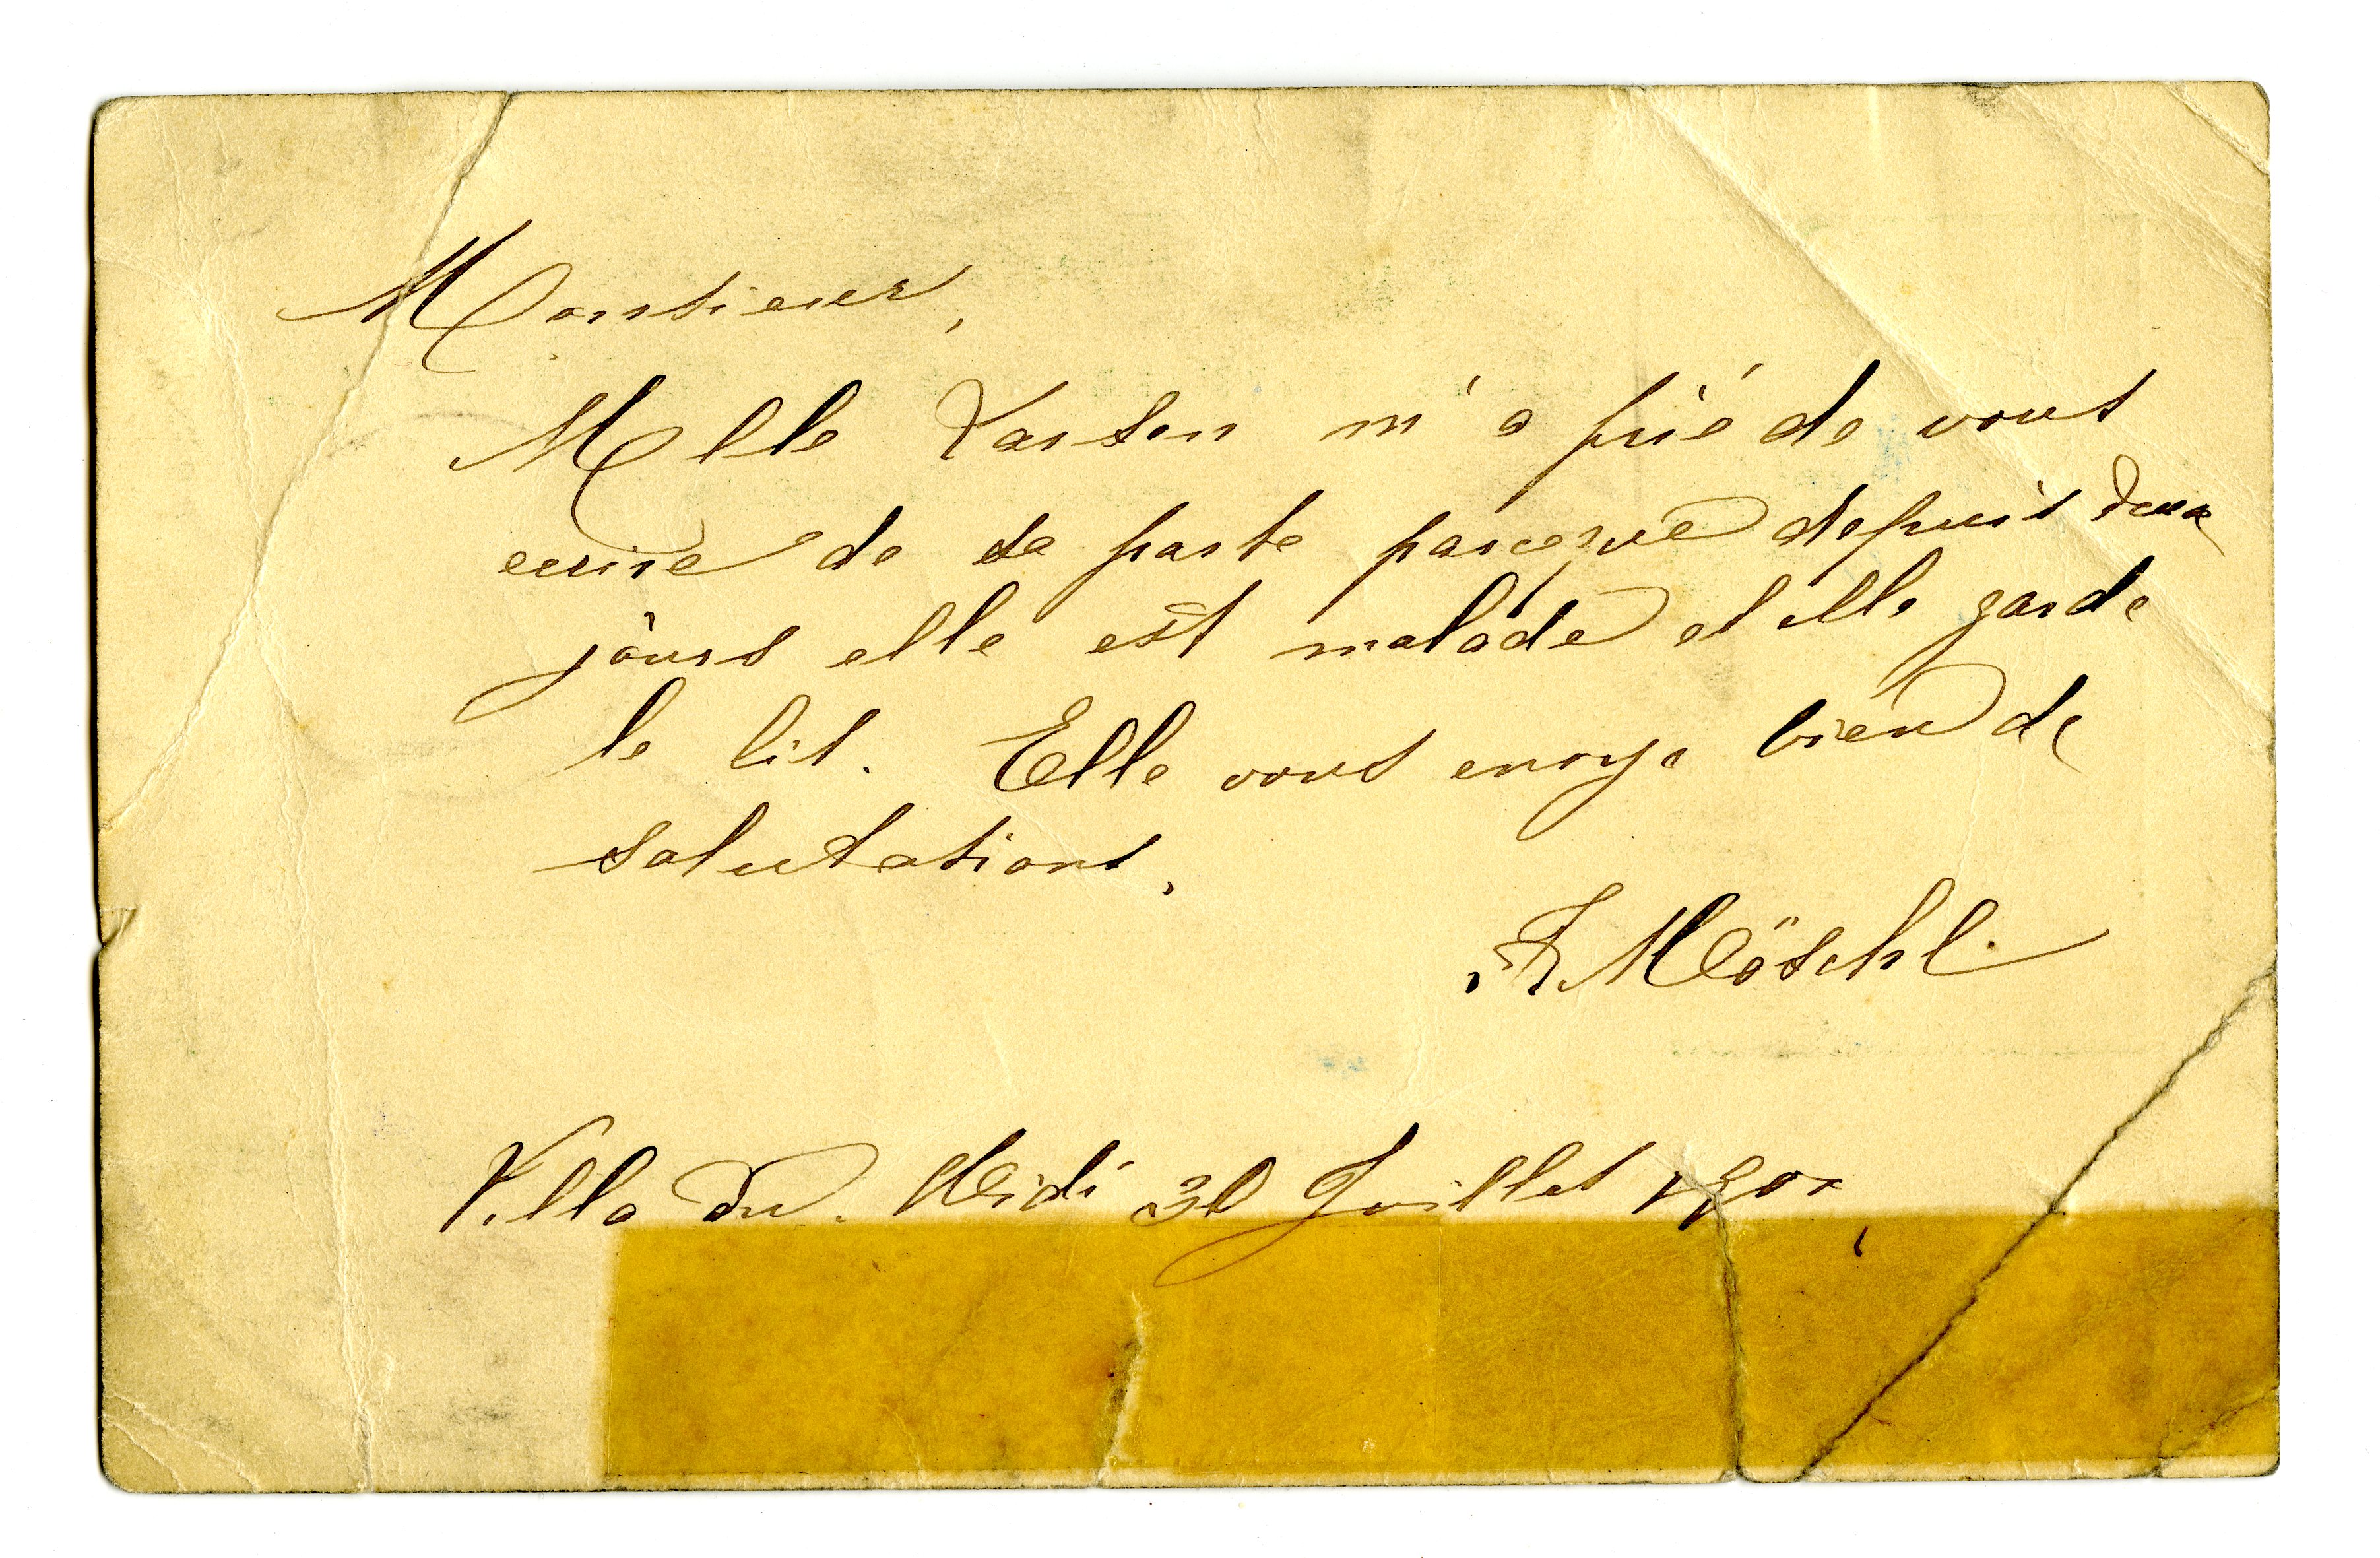 Monsieur,
Melle Larsen m'a prié de vous
ecrire de sa parte parceque depuis deux
jours elle est malade et elle garde
le lit. Elle vous envoye bien de
salutations.
F. Möschl.
Villa du Midi 30 Juillet